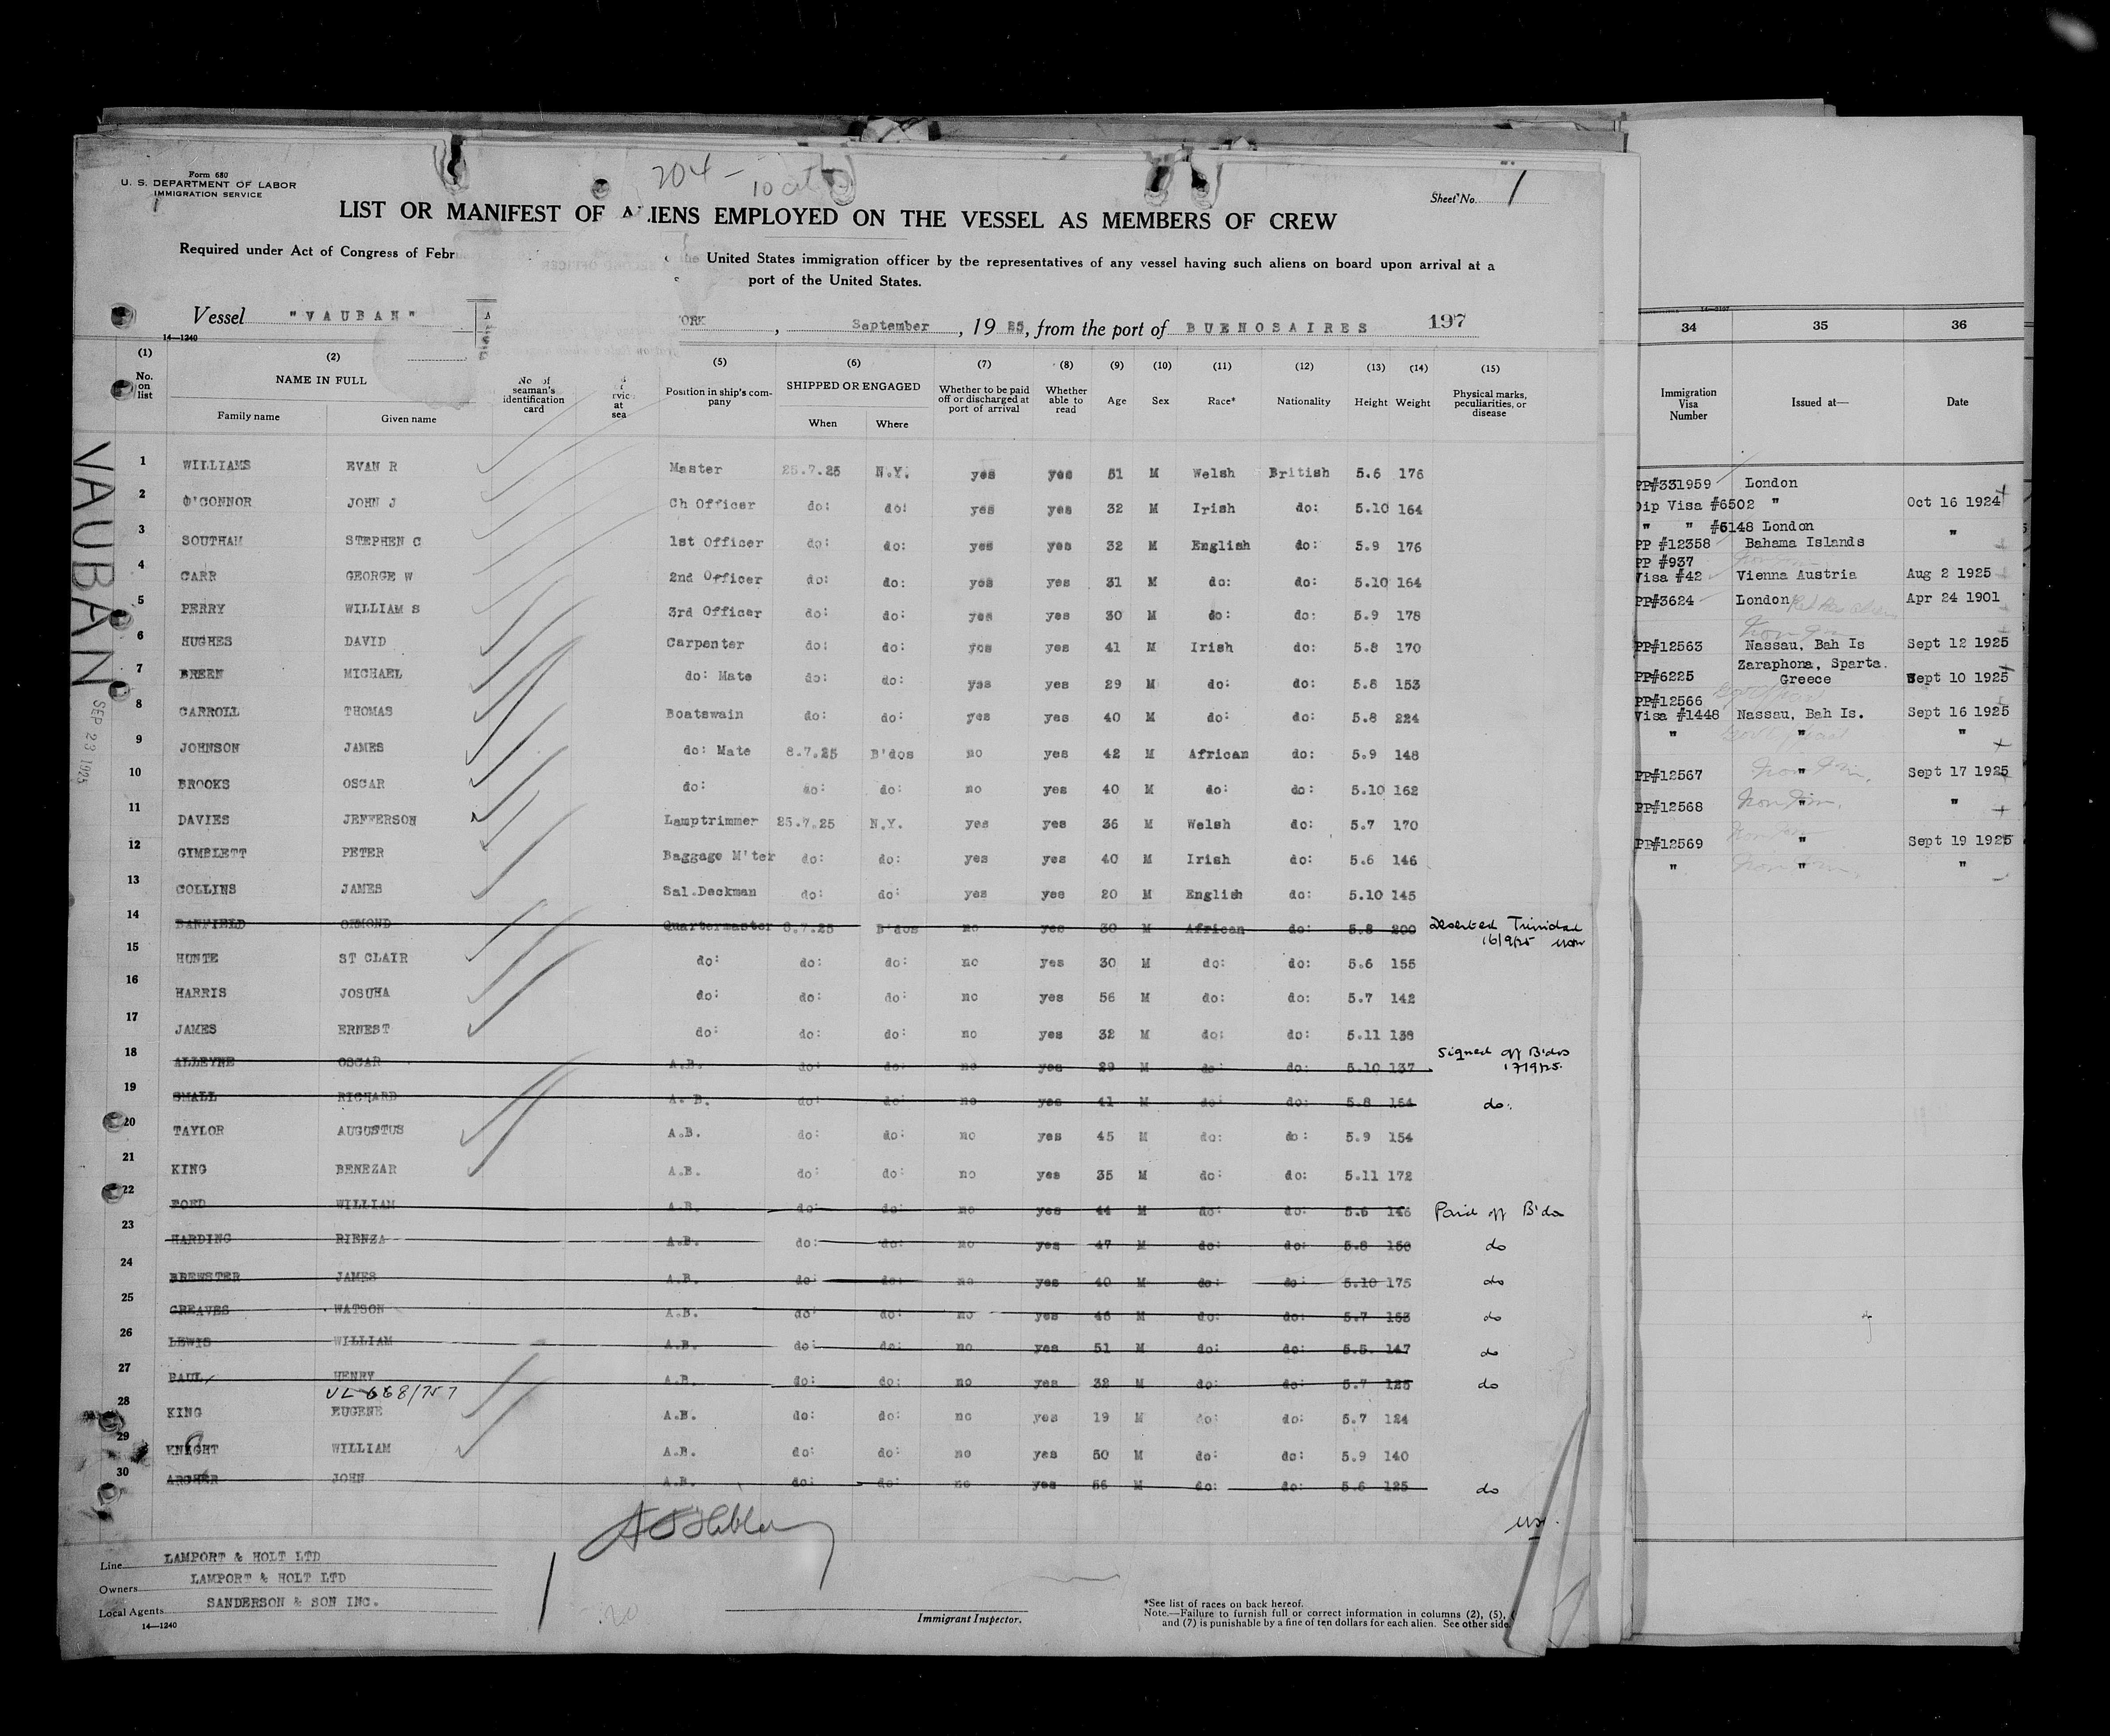 Form 680
U. S. DEPARTMENT OF LABOR
IMMIGRATION SERVICE
204 –
Sheet No. 1
LIST OR MANIFEST OF ALIENS EMPLOYED ON THE VESSEL AS MEMBERS OF CREW
Required under Act of Congress of Febr
United States immigration officer by the representatives of any vessel having such aliens on board upon arrival at a
port of the United States.
Vessel "VAUBAN" ORK , September , 19 25, from the port of BUENOSAIRES 197
14—1240
(1) (2) (5) (6) (7) (8) (9) (10) (11) (12) (13) (14) (15)
No. on list NAME IN FULL Family name Given name No. of seaman's identification card at sea Position in ship's company SHIPPED OR ENGAGED When Where Whether to be paid off or discharged at port of arrival Whether able to read Age Sex Race* Nationality Height Weight Physical marks, peculiarities, or disease
1 WILLIAMS EVAN R Master 25.7.25 N.Y. yes yes 51 M Welsh British 5.6 176
2 O'CONNOR JOHN J Ch Officer do: do: yes yes 32 M Irish do: 5.10 164
3 SOUTHAM STEPHEN C 1st Officer do: do: yes yes 32 M English do: 5.9 176
4 CARR GEORGE W 2nd Officer do: do: yes yes 31 M do: do: 5.10 164
5 PERRY WILLIAM S 3rd Officer do: do: yes yes 30 M do: do: 5.9 178
6 HUGHES DAVID Carpenter do: do: yes yes 41 M Irish do: 5.8 170
7 BREEN MICHAEL do: Mate do: do: yes yes 29 M do: do: 5.8 153
8 CARROLL THOMAS Boatswain do: do: yes yes 40 M do: do: 5.8 224
9 JOHNSON JAMES do: Mate 8.7.25 B'dos no yes 42 M African do: 5.9 148
10 BROOKS OSCAR do: do: do: no yes 40 M do: do: 5.10 162
11 DAVIES JEFFERSON Lamptrimmer 25.7.25 N.Y. yes yes 36 M Welsh do: 5.7 170
12 GIMBLETT PETER Baggage M'ter do: do: yes yes 40 M Irish do: 5.6 146
13 COLLINS JAMES Sal.Deckman do: do: yes yes 20 M English do: 5.10 145
14 BANFIELD ORMOND Quartermaster 8.7.25 B'dos no yes 30 M African do: 5.8 200 Deserted Trinidad
16/9/25
15 HUNTE ST CLAIR do: do: do: no yes 30 M do: do: 5.6 155
16 HARRIS JOSUHA do: do: do: no yes 56 M do: do: 5.7 142
17 JAMES ERNEST do: do: do: no yes 32 M do: do: 5.11 138
18 ALLEYNE OSCAR A.B. do: do: no yes 29 M do: do: 5.10 137 Signed off B'dos
17/9/25.
19 SMALL RICHARD A.B. do: do: no yes 41 M do: do: 5.8 164 do:
20 TAYLOR AUGUSTUS A.B. do: do: no yes 45 M do: do: 5.9 154
21 KING BENEZAR A.B. do: do: no yes 35 M do: do: 5.11 172
22 FORD WILLIAM A.B. do: do: no yes 44 M do: do: 5.6 146 Paid off B'dos
23 HARDING RIENZA A.B. do: do: no yes 47 M do: do: 5.8 150 do
24 BREWSTER JAMES A.B. do: do: no yes 40 M do: do: 5.10 175 do
25 GREAVES WATSON A.B. do: do: no yes 48 M do: do: 5.7 163 do
26 LEWIS WILLIAM A.B. do: do: no yes 51 M do: do: 5.5 147 do
27 PAUL HENRY A.B. do: do: no yes 32 M do: do: 5.7 125 do
VL 668/757
28 KING EUGENE A.B. do: do: no yes 19 M do: do: 5.7 124
29 KNIGHT WILLIAM A.B. do: do: no yes 50 M do: do: 5.9 140
30 ARCHER JOHN A.B. do: do: no yes 56 M do: do: 5.6 125 do
Line LAMPORT & HOLT LTD
Owners LAMPORT & HOLT LTD
Local Agents SANDERSON & SON INC.
14—1240
Immigrant Inspector.
*See list of races on back hereof.
Note.—Failure to furnish full or correct information in columns (2), (5),
and (7) is punishable by a fine of ten dollars for each alien. See other side.
VAUBAN
SEP 23 1925
34 35 36
Immigration Visa Number Issued at— Date
PP#331959 London
Dip Visa #6502 " Oct 16 1924
" " #6148 London "
PP #12358 Bahama Islands
PP #937
Visa #42 Vienna Austria Aug 2 1925
PP#3624 London Apr 24 1901
PP#12563 Nassau, Bah Is Sept 12 1925
Zaraphona, Sparta.
PP#6225 Greece Sept 10 1925
PP#12566
Visa #1448 Nassau, Bah Is. Sept 16 1925
" " "
PP#12567 " Sept 17 1925
PP#12568 " "
PP#12569 " Sept 19 1925
" " "